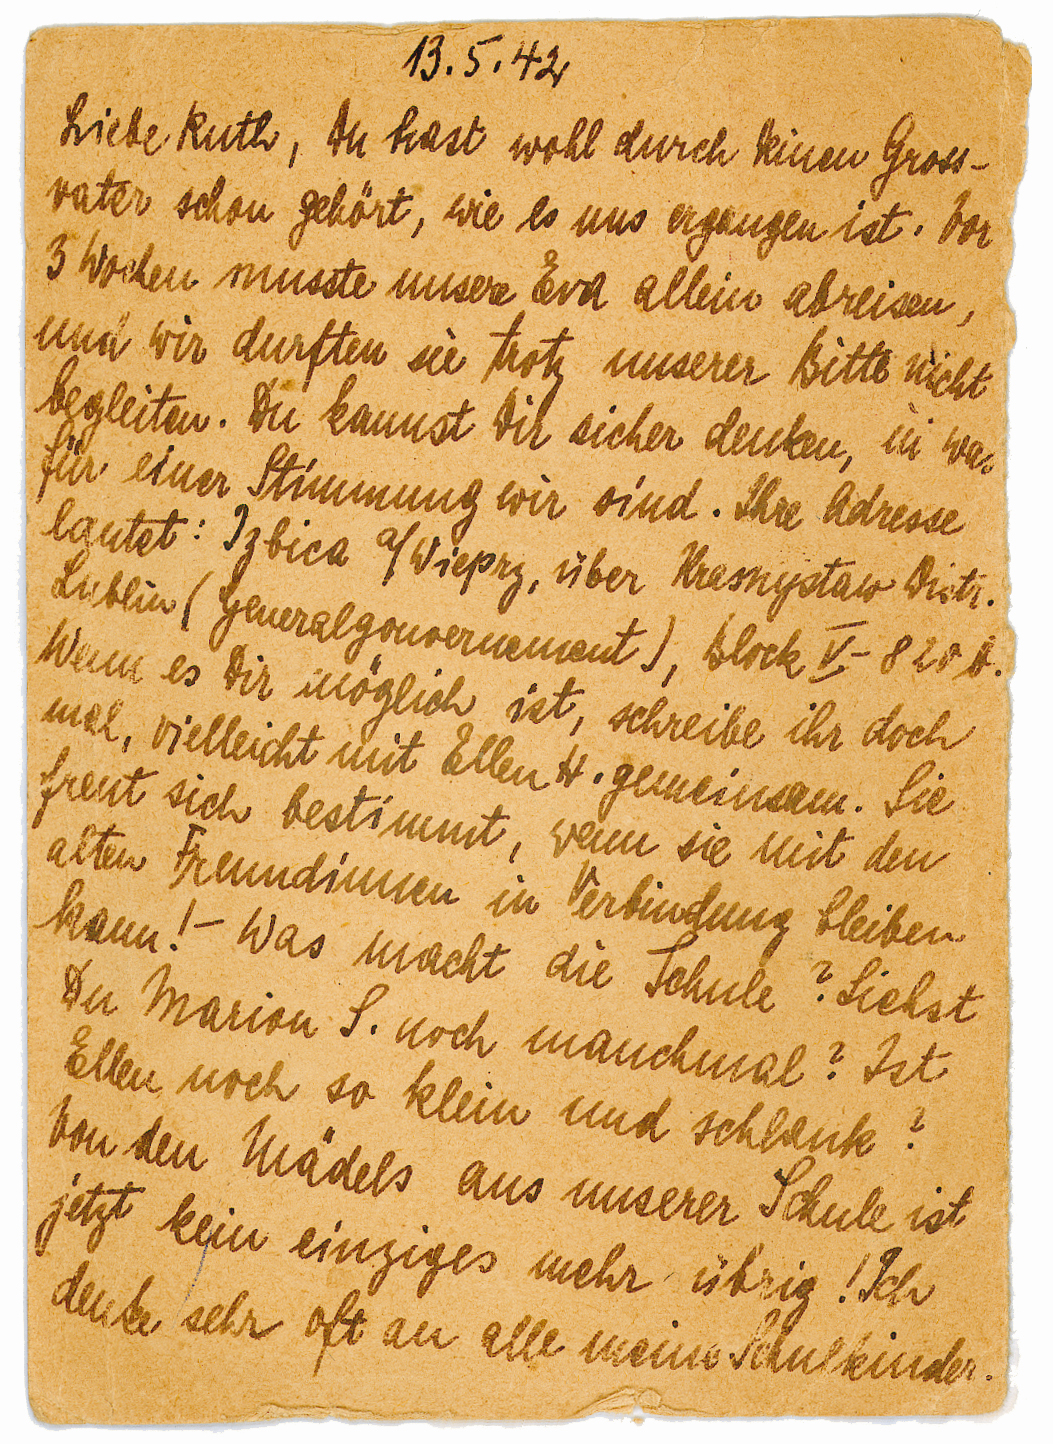 13.5.42
Liebe Ruth, Du hast wohl durch Deinen Gross-
vater schon gehört, wie es uns ergangen ist. Vor
3 Wochen musste unsere Eva allein abreisen,
und wir durften sie trotz unserer Bitte nicht
begleiten. Du kannst Dir sicher denken, in was
für einer Stimmung wir sind. Ihre Adresse
lautet: Izbica a/Wieprz, über Krasnystaw Distr.
Lublin (Generalgouvernement), Block V- 820 b.
Wenn es Dir möglich ist, schreibe ihr doch
mal, vielleicht mit Ellen H. gemeinsam. Sie
freut sich bestimmt, wenn sie mit den
alten Freundinnen in Verbindung bleiben
kann! - Was macht die Schule? Siehst
Du Marion S. noch manchmal? Ist
Ellen noch so klein und schlank?
Von den Mädels aus unserer Schule ist
jetzt kein einziges mehr übrig! Ich
denke sehr oft an alle meine Schulkinder.